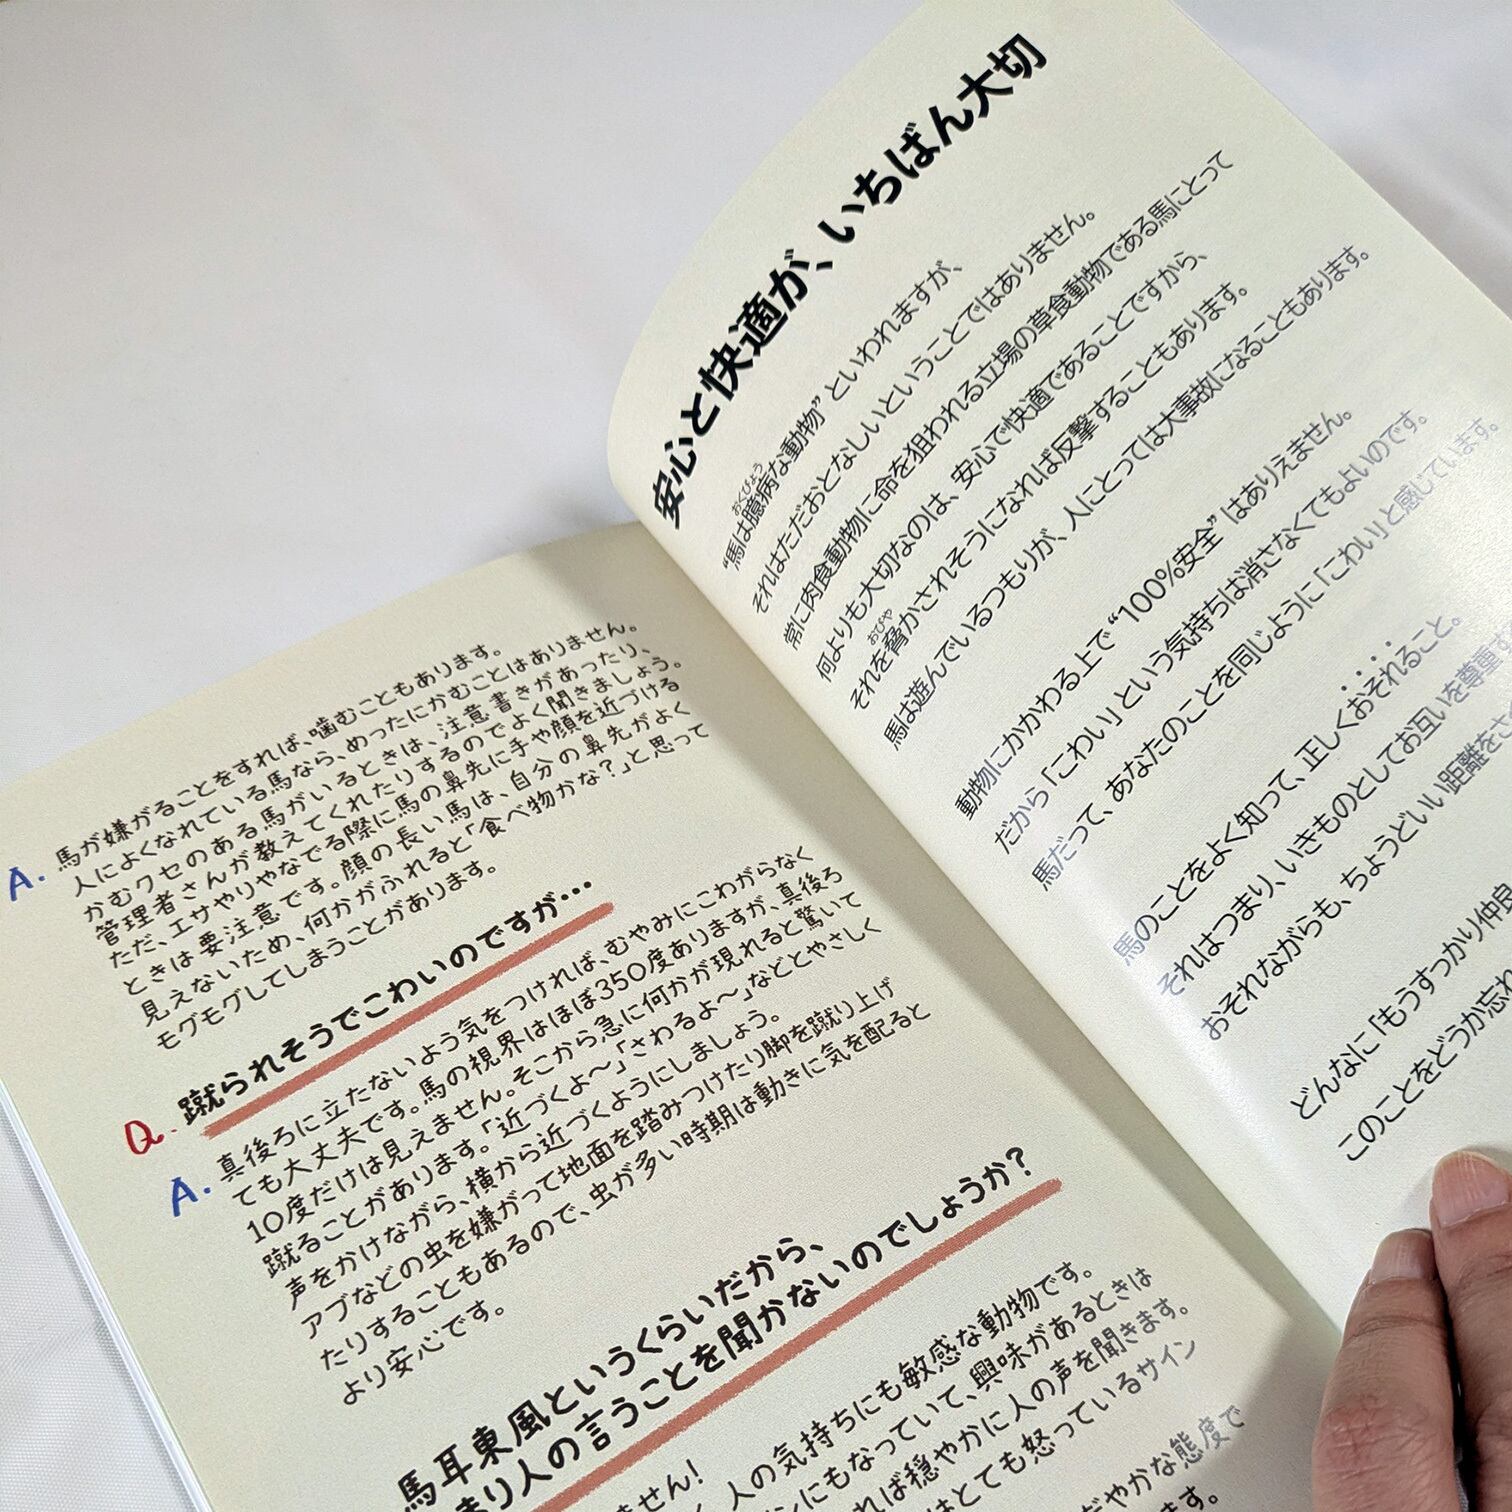 A. 馬が嫌がることをすれば、噛むこともあります。
人によくなれている馬なら、めったにかむことはありません。
かむクセのある馬がいるときは、注意書きがあったり、
管理者さんが教えてくれたりするのでよく聞きましょう。
ただ、エサやりやなでる際に馬の鼻先に手や顔を近づける
ときは要注意です。顔の長い馬は、自分の鼻先がよく
見えないため、何かがふれると「食べ物かな?」と思って
モグモグしてしまうことがあります。
Q. 蹴られそうでこわいのですが…
A. 真後ろに立たないよう気をつければ、むやみにこわがらなく
ても大丈夫です。馬の視界はほぼ350度ありますが、真後ろ
10度だけは見えません。そこから急に何かが現れると驚いて
蹴ることがあります。「近づくよ〜」「さわるよ〜」などとやさしく
声をかけながら、横から近づくようにしましょう。
アブなどの虫を嫌がって地面を踏みつけたり脚を蹴り上げ
たりすることもあるので、虫が多い時期は動きに気を配ると
より安心です。
馬耳東風というくらいだから、
り人の言うことを聞かないのでしょうか?
ません!
人の気持ちにも敏感な動物です。
ンにもなっていて、興味があるときは
れば穏やかに人の声を聞きます。
はとても怒っているサイン
だやかな態度で
ます。
安心と快適が、いちばん大切
“馬は臆病な動物” といわれますが、
おくびょう
それはただおとなしいということではありません。
常に肉食動物に命を狙われる立場の草食動物である馬にとって
何よりも大切なのは、安心で快適であることですから、
それを脅かされそうになれば反撃することもあります。
おびや
馬は遊んでいるつもりが、人にとっては大事故になることもあります。
動物にかかわる上で “100%安全” はありえません。
だから「こわい」という気持ちは消さなくてもよいのです。
馬だって、あなたのことを同じように「こわい」と感じています。
馬のことをよく知って、正しくおそれること。
それはつまり、いきものとしてお互いを尊重す
おそれながらも、ちょうどいい距離をさ
どんなに「もうすっかり仲良
このことをどうか忘れ